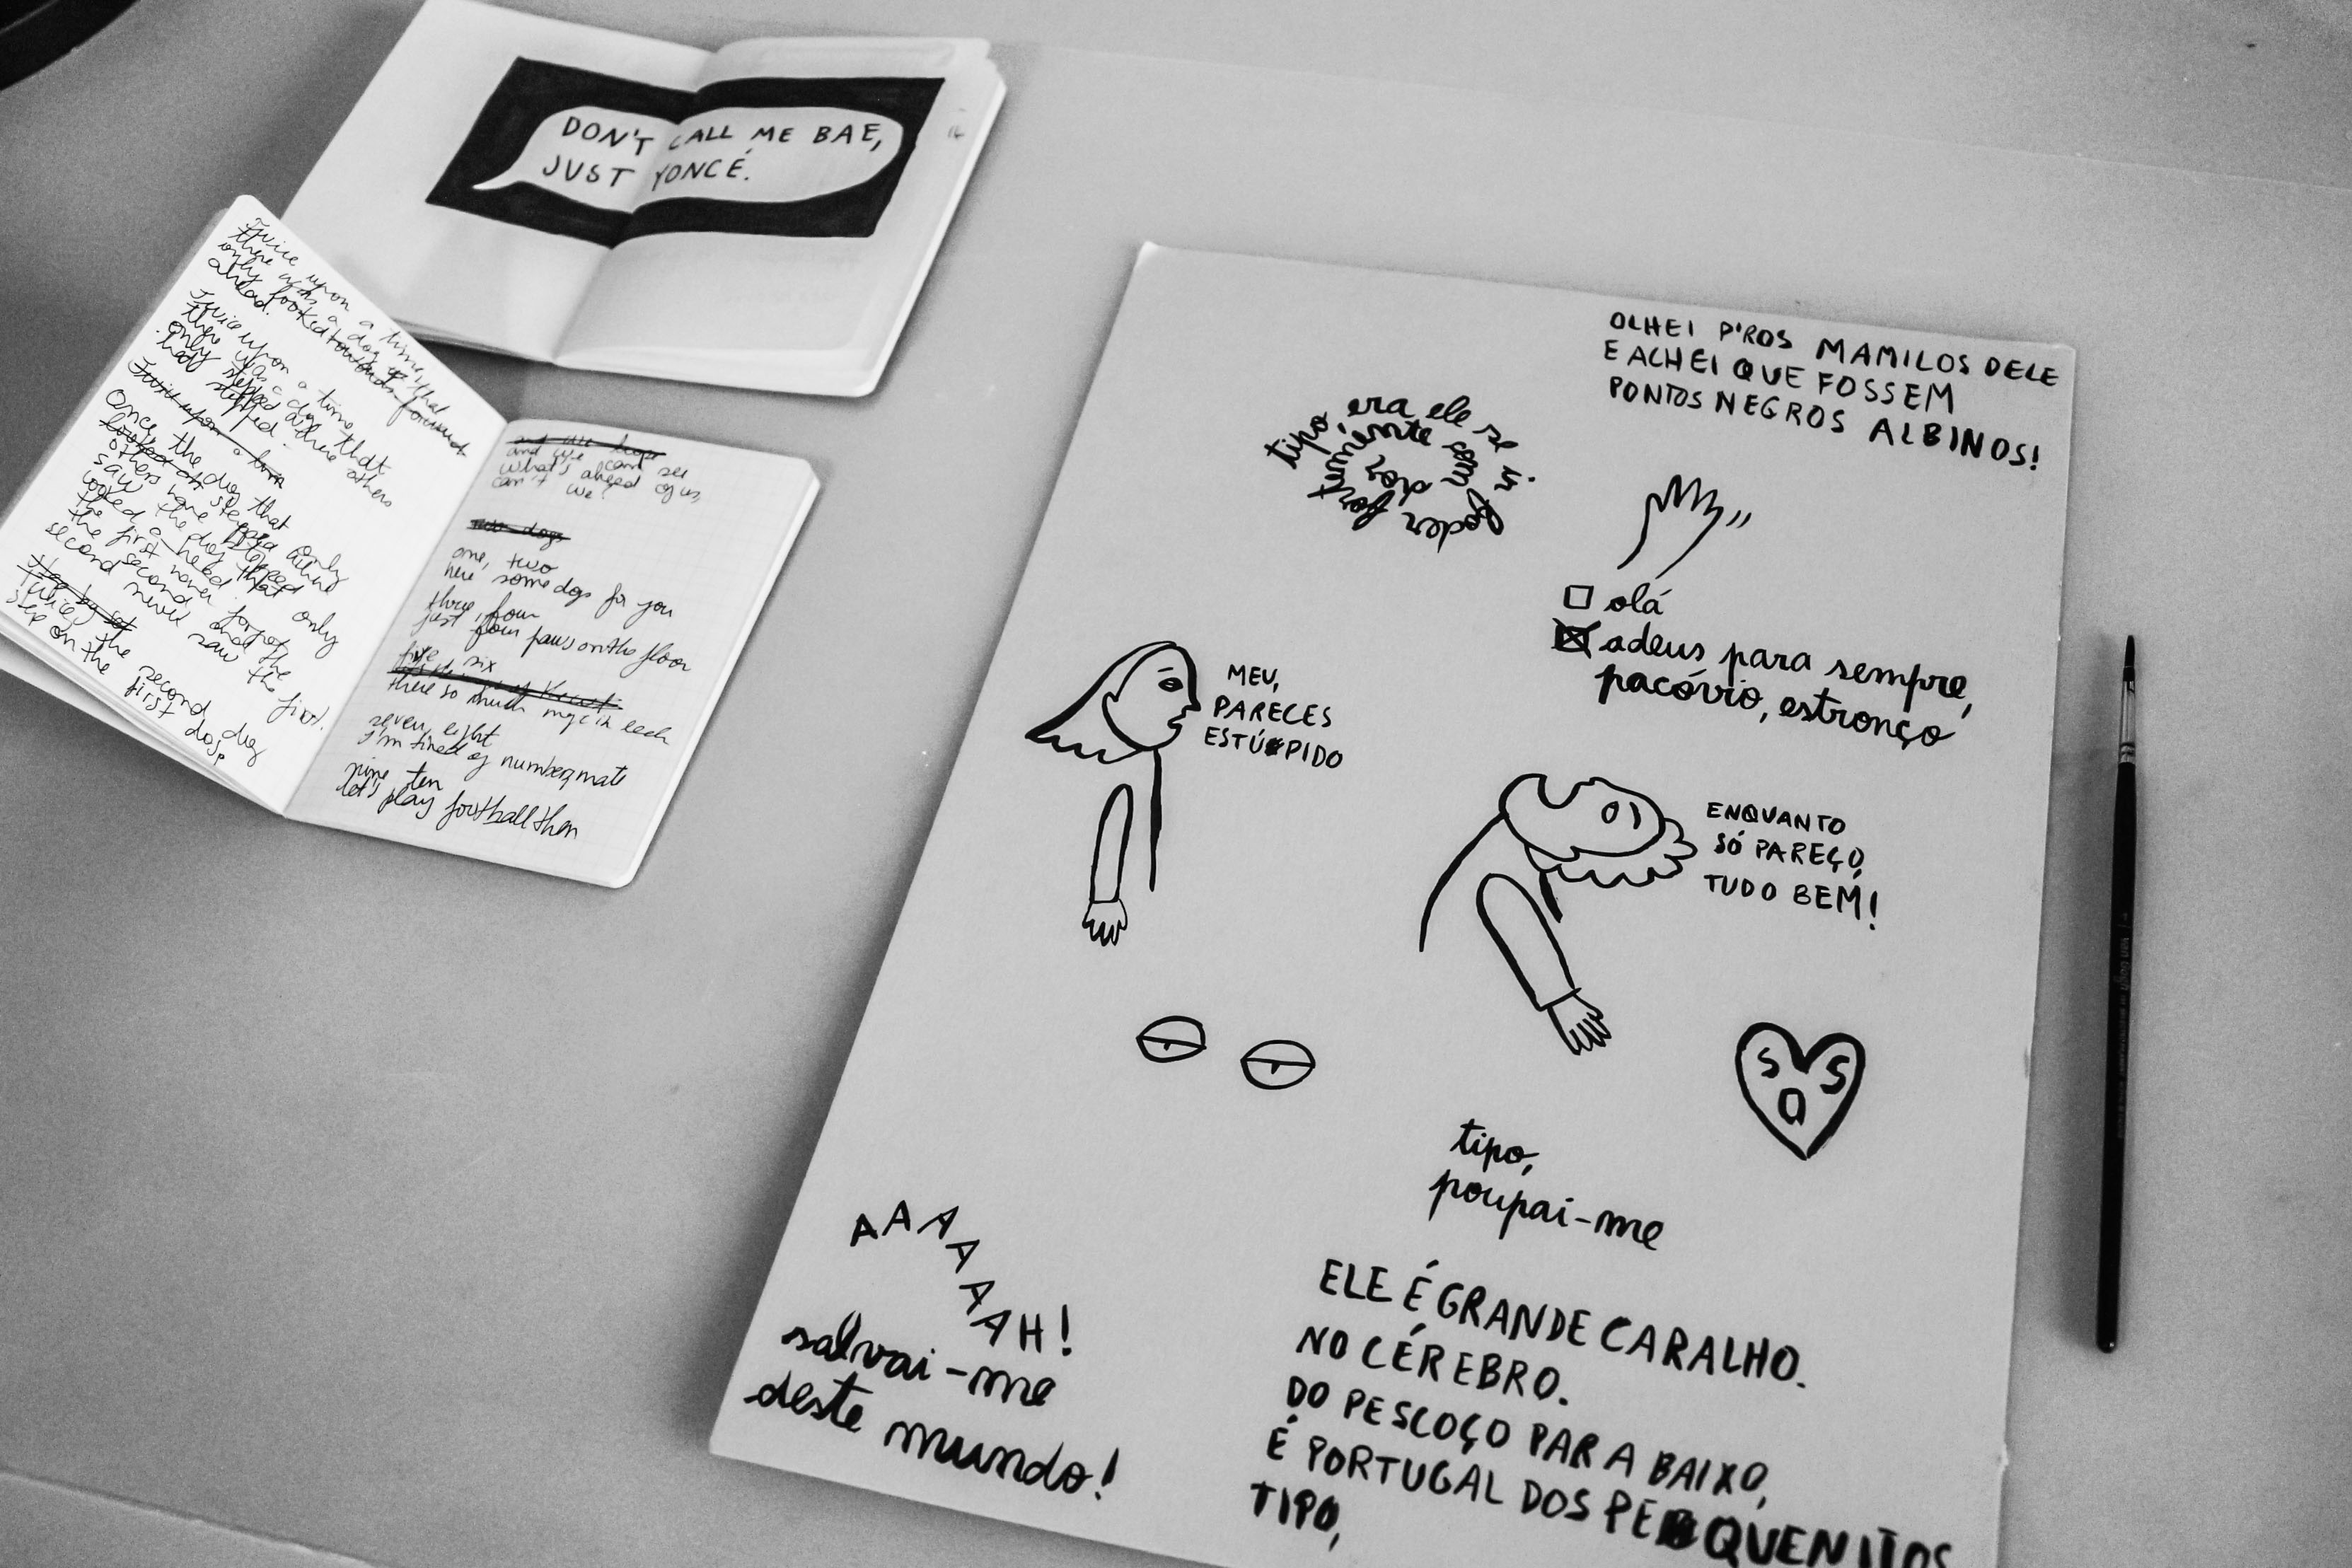 DON'T CALL ME BAE,
JUST YONCÉ.
Twice upon a time,
there was a dog that
only looked towards forward
ahead.
Twice upon a time
there was a dog that
only stepped where others
had stepped.
Twice upon a time
Once, the dog that
looked at stepped only
others have stepped
saw the dog that only
looked ahead
the first never forgot the
second and the
second never saw the first.
Twice, the second dog
step on the first dog.
and we can see
what's ahead of us,
can't we?
two dogs
one, two
here some dogs for you
three, four
just four paws on the floor
five, six
there so much in each
seven, eight
I'm tired of number, mate
nine ten
let's play football then
OLHEI P'ROS MAMILOS DELE
E ACHEI QUE FOSSEM
PONTOS NEGROS ALBINOS!
tipo, era ele se in
foder fortemente com dor
olá
adeus para sempre,
pacóvio, estronço
MEU,
PARECES
ESTÚPIDO
ENQUANTO
SÓ PAREÇO,
TUDO BEM!
S S
O
tipo,
poupai-me
AAAAAAH!
salvai-me
deste mundo!
ELE É GRANDE CARALHO.
NO CÉREBRO.
DO PESCOÇO PARA BAIXO,
É PORTUGAL DOS PEQUENITOS
TIPO,